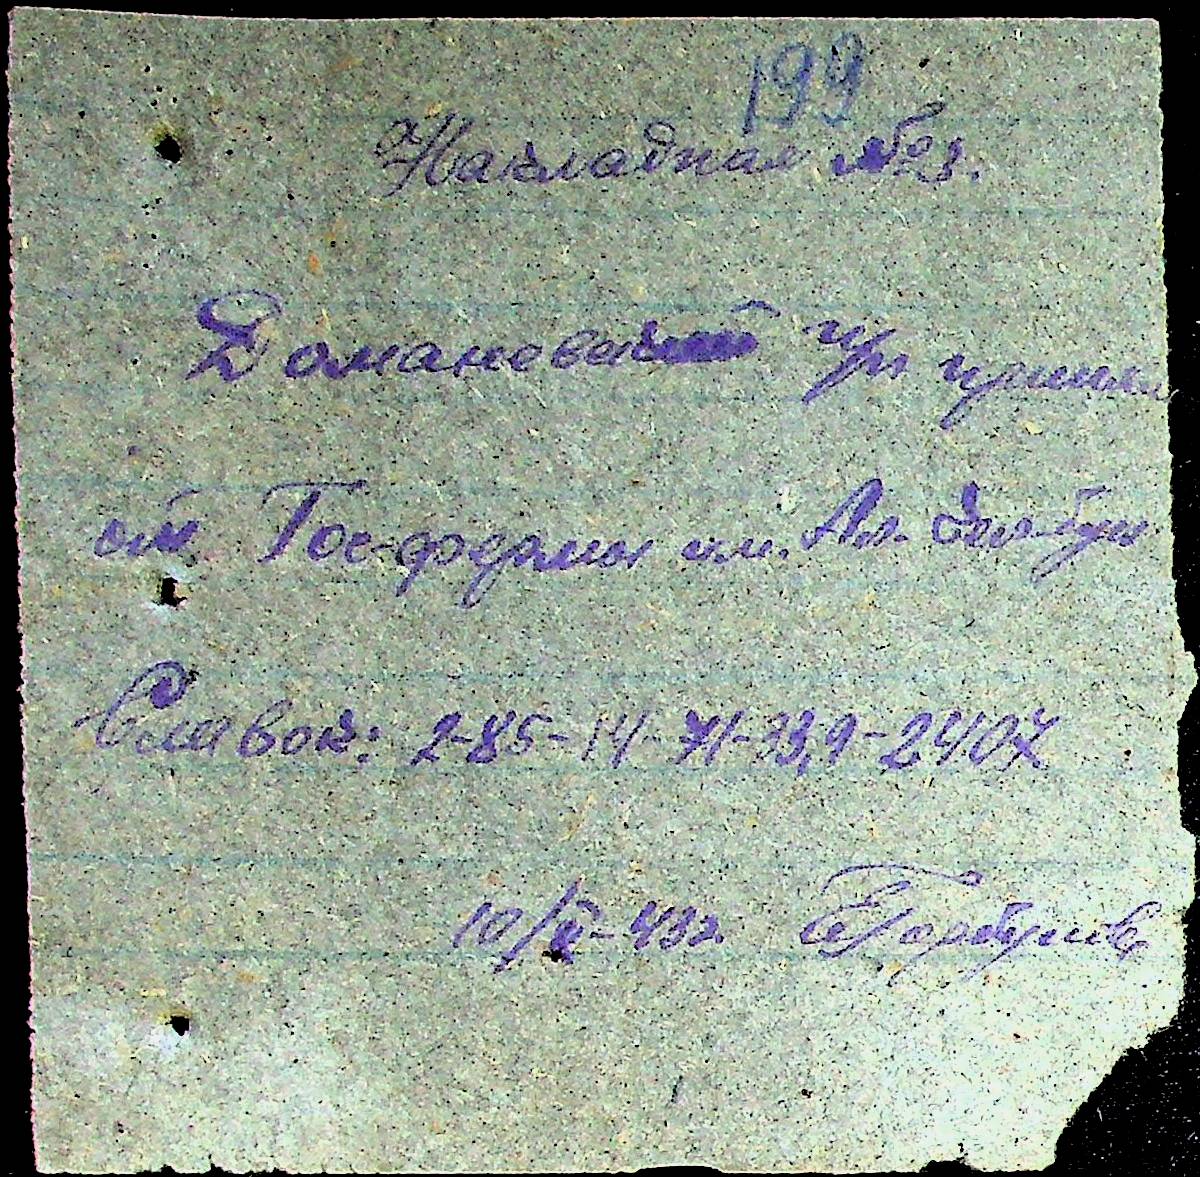 199
Накладная №23.
Доманевский
от Гос-фермы им.
Сливок: 2-85-14-71-33,9-2407
10/V-43г. Горбунов